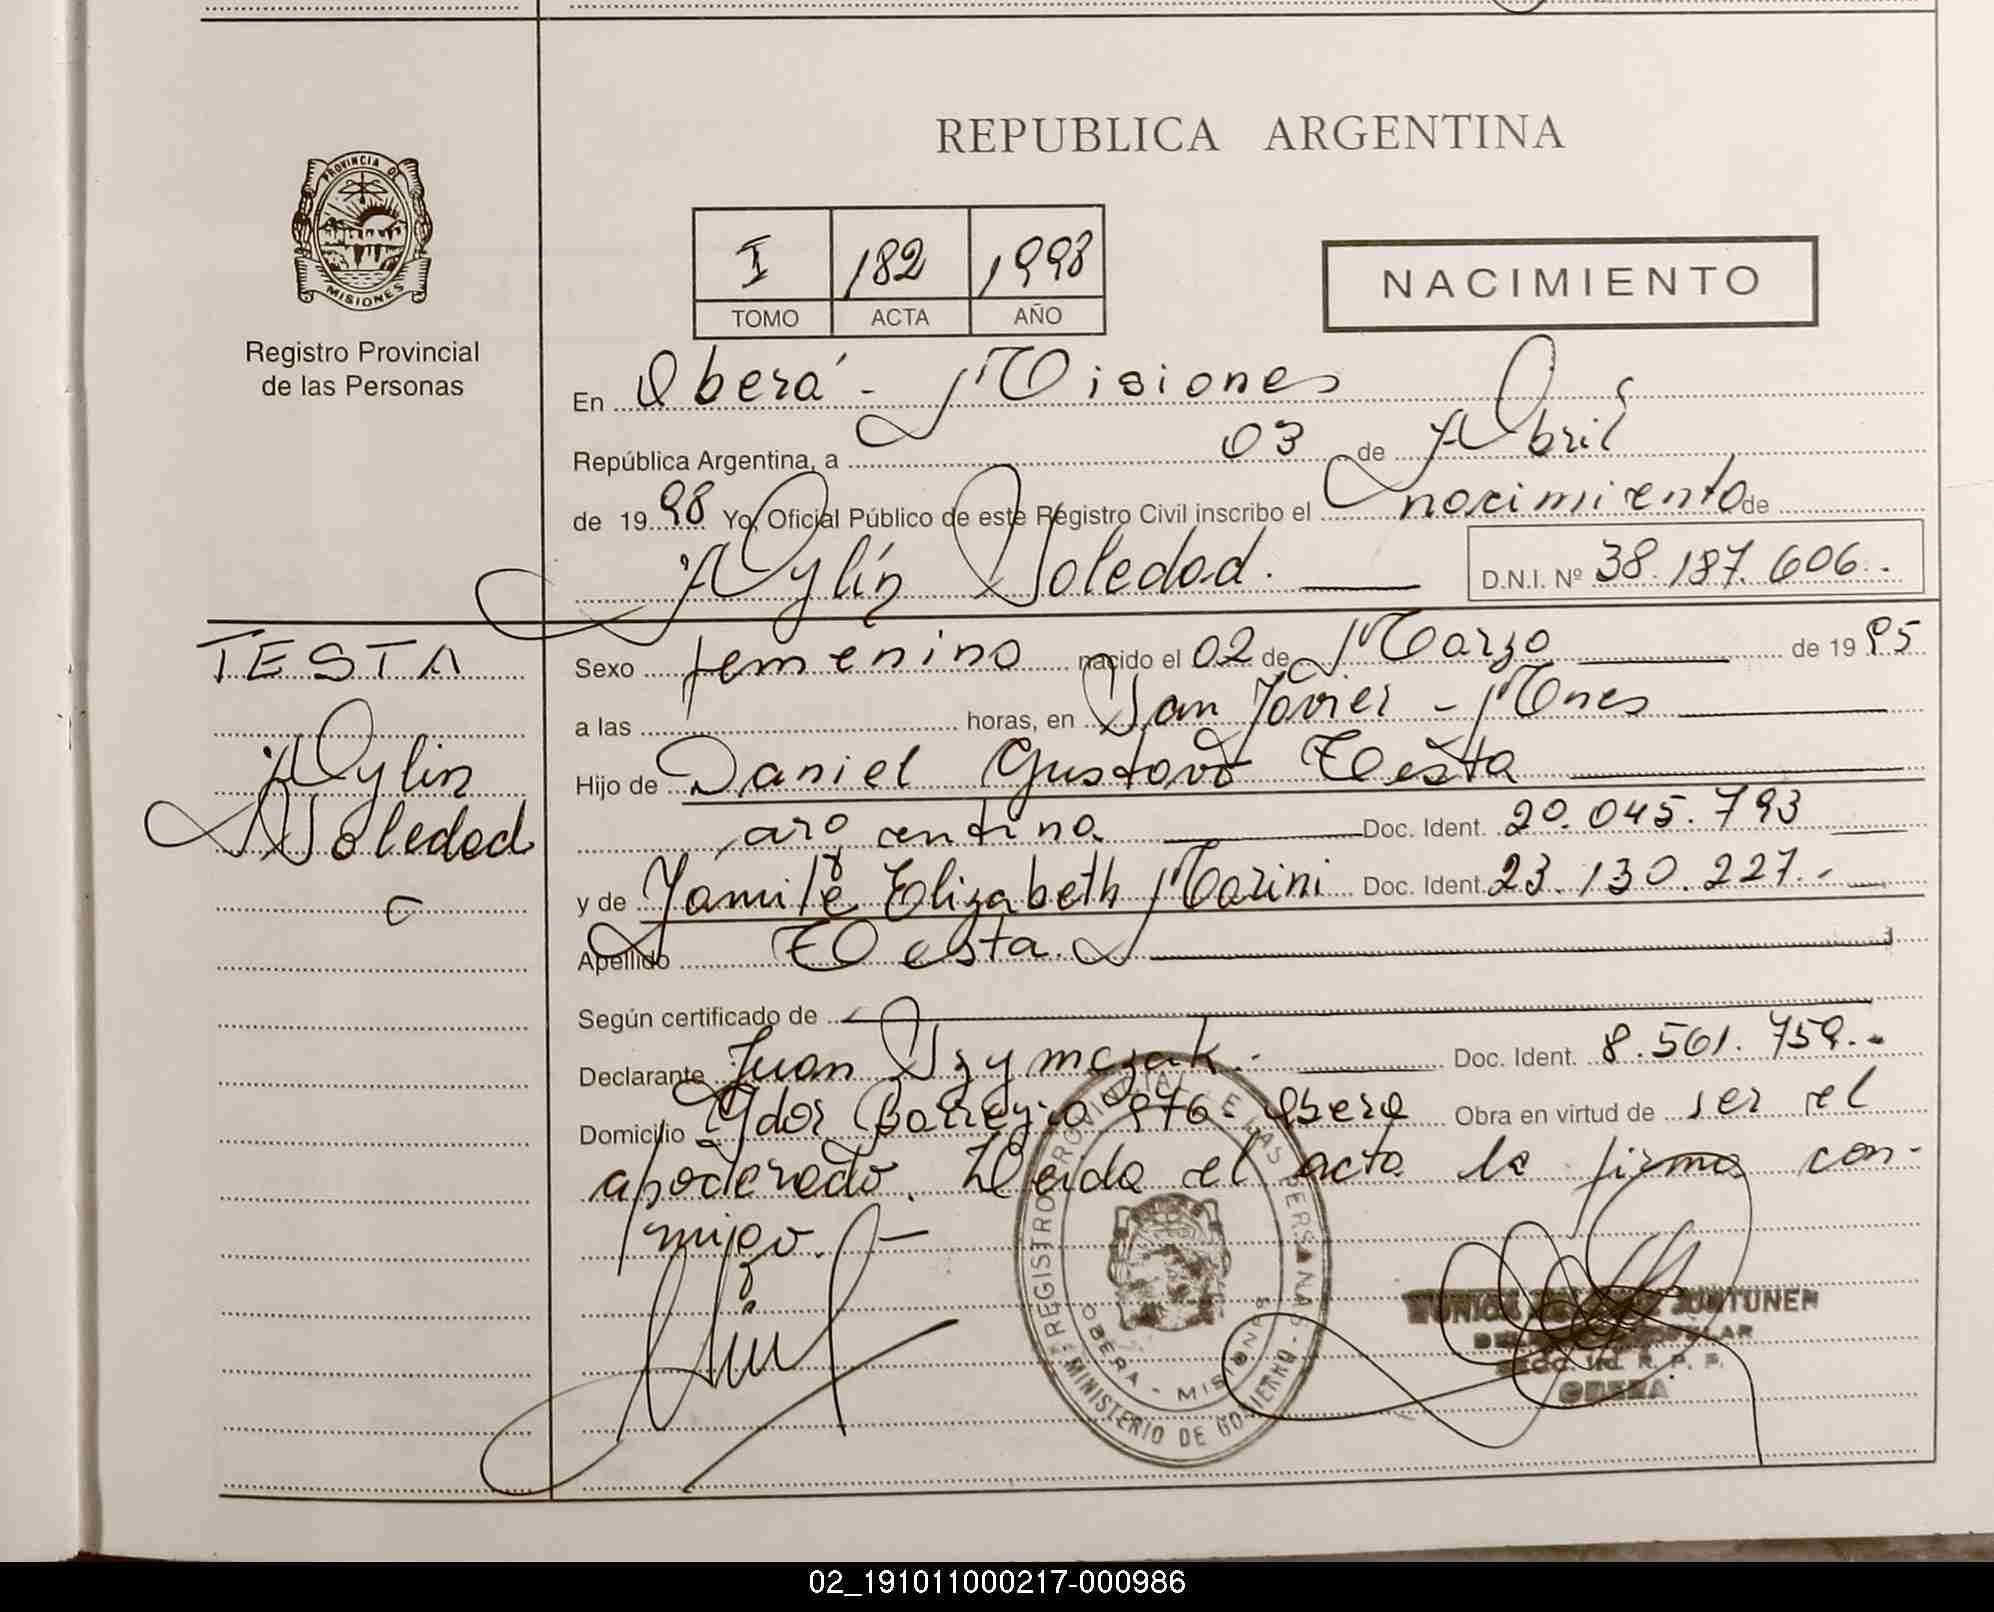 REPUBLICA ARGENTINA
PROVINCIA DE
MISIONES
Registro Provincial
de las Personas
I 182 1998
TOMO ACTA AÑO
NACIMIENTO
En Oberá - Misiones
República Argentina, a 03 de Abril
de 1998 Yo, Oficial Público de este Registro Civil inscribo el nacimiento de
Aylín Soledad. D.N.I. Nº 38.187.606.
TESTA
Aylin
Soledad
Sexo femenino nacido el 02 de Marzo de 1995
a las horas, en San Javier - Mnes
Hijo de Daniel Gustavo Testa
argentina Doc. Ident. 20.045.793
y de Yamile Elizabeth Marini Doc. Ident. 23.130.227.-
Apellido Testa.
Según certificado de
Declarante Juan Szymczak. Doc. Ident. 8.561.759.-
Domicilio Ydor Barreyro 976 - Obera Obra en virtud de ser el
apoderado. Leida el acta la firma con-
migo. -
REGISTRO PROVINCIAL DE LAS PERSONAS - MINISTERIO DE GOBIERNO
OBERA - MISIONES
JUNTUNEN
R. P. P.
OBERA
02_191011000217-000986